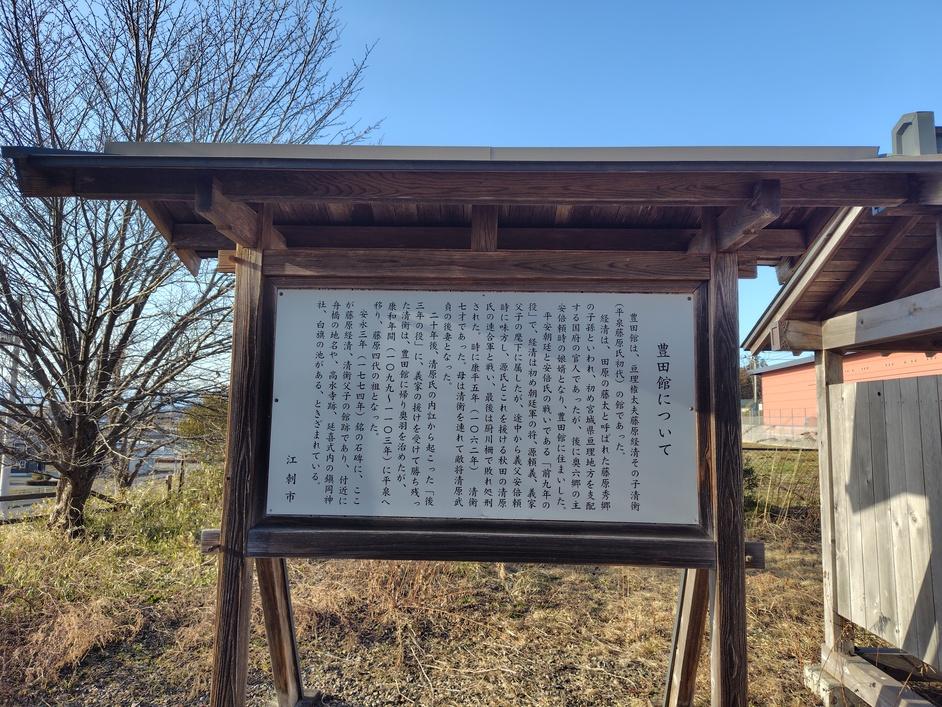 豊田館について
豊田館は、亘理権太夫藤原経清その子清衡
(平泉藤原氏初代)の館であった。
経清は、田原の藤太と呼ばれた藤原秀郷
の子孫といわれ、初め宮城県亘理地方を支配
する国府の官人であったが、後に奥六郡の主
安倍頼時の娘婿となり、豊田館に住まいした。
平安朝廷と安倍氏の戦いである「前九年の
役」で、経清は初め朝廷軍の将、源頼義、義家
父子の麾下に属したが、途中から義父安倍頼
時に味方し、源氏とこれを援ける秋田の清原
氏の連合軍と戦い、最後は厨川柵で敗れ処刑
された。時に康平五年(一〇六二年)清衡
七才であった。母は清衡を連れて敵将清原武
貞の後妻となった。
二十年後、清原氏の内訌から起こった「後
三年の役」に、義家の援けを受けて勝ち残っ
た清衡は、豊田館に帰り奥羽を治めたが、
康和年間(一〇九九～一一〇三年)に平泉へ
移り、藤原四代の祖となった。
安永三年(一七七四年)銘の石碑に、ここ
が藤原経清、清衡父子の館跡であり、付近に
舟橋の地名や、高水寺跡、延喜式内の鎮岡神
社、白旗の池がある、ときざまれている。
江刺市